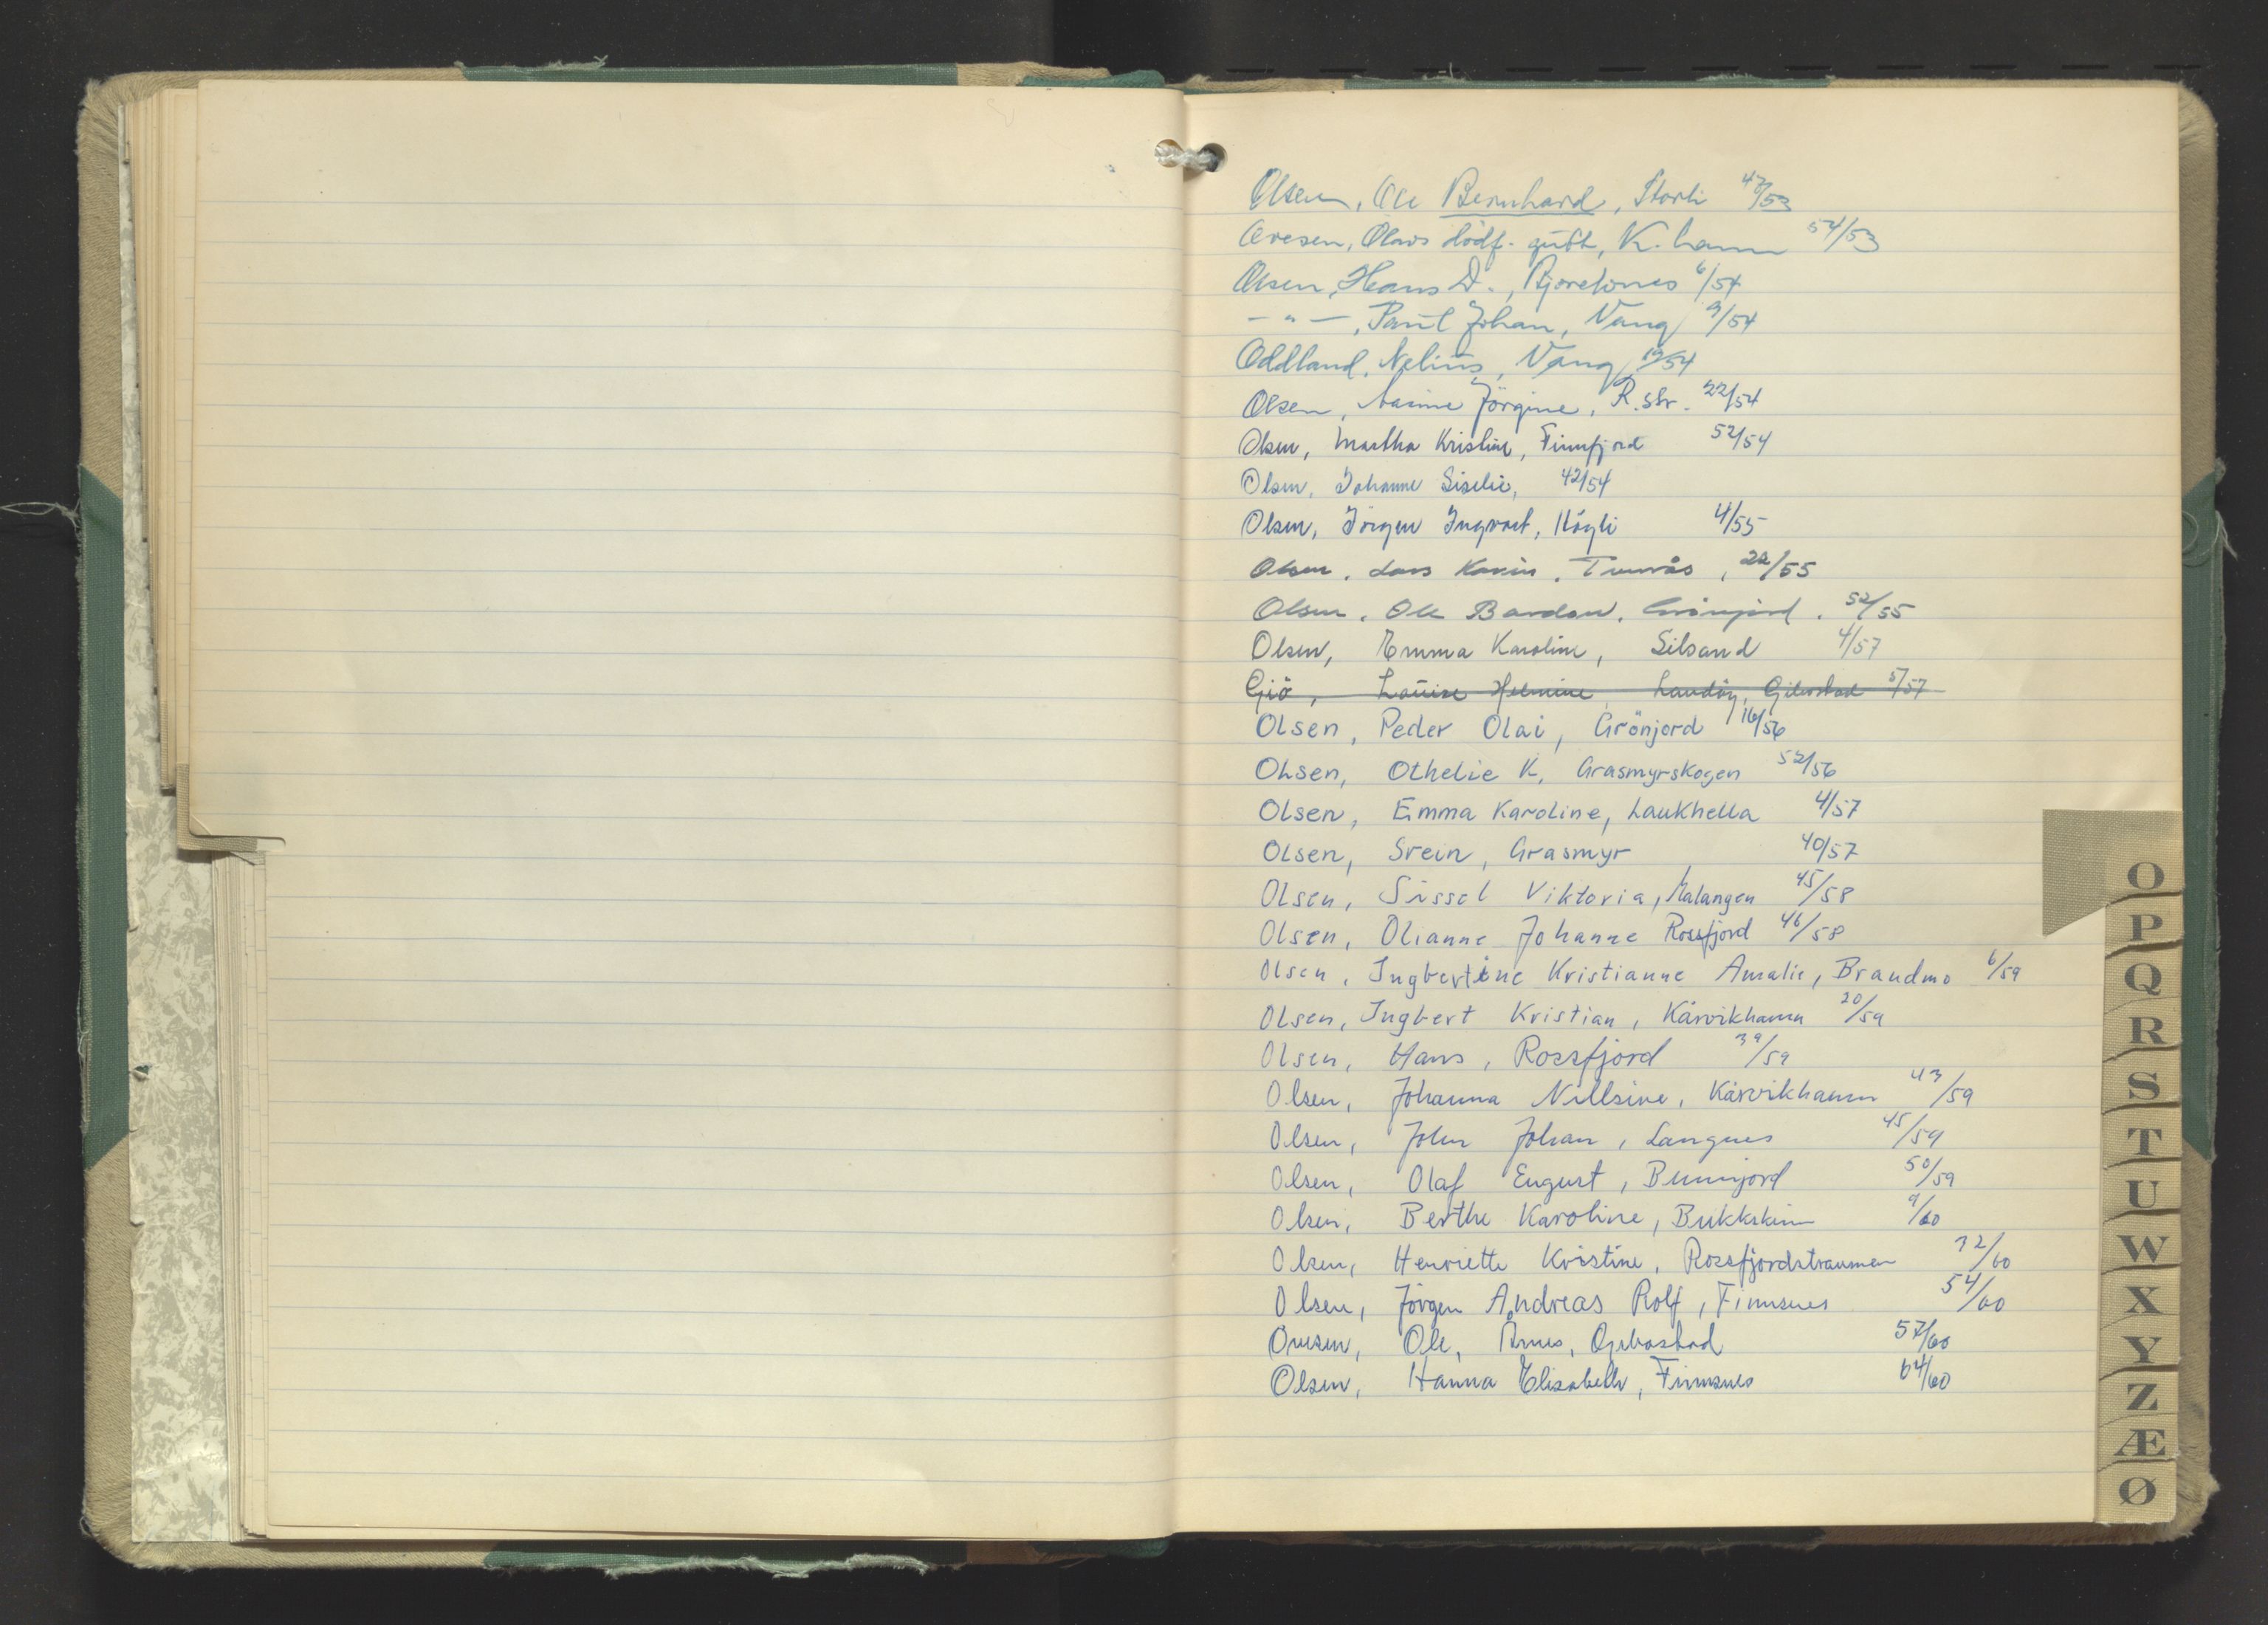 Olsen, Ole Bernhard, Storli 47/53
Ovesen, Olavs dödf. gutt, K.hamn 54/53
Olsen, Hans D., Bjorelvnes 6/54
— " —, Paul Johan, Vang 9/54
Oddland, Nelius, Vang 19/54
Olsen, Jörgine, R.str. 22/54
Olsen, Martha Kristine, Finnfjord 52/54
Olsen, Johanne Siselie, 42/54
Olsen, Jörgen Ingvart, Högli 4/55
Olsen, Lars Kavin, 22/55
Olsen, Ole Bardon, Grönjord. 52/55
Olsen, Emma Karoline, Silsand 4/57
Giö, Louise Helmine, Landöy, Gibostad 5/57
Olsen, Peder Olai, Grönjord 16/56
Olsen, Othelie K, Grasmyrskogen 52/56
Olsen, Emma Karoline, Laukhella 4/57
Olsen, Svein, Grasmyr 40/57
Olsen, Sissel Viktoria, Malangen 45/58
Olsen, Olianne Johanne Rossfjord 46/58
Olsen, Ingbertine Kristianne Amalie, Brandmo 6/59
Olsen, Ingbert Kristian, Kårvikhamn 20/59
Olsen, Hans, Rossfjord 39/59
Olsen, Johanna Nillsine, Kårvikhamn 43/59
Olsen, John Johan, Langnes 45/59
Olsen, Olaf Eugust, Bunnjord 50/59
Olsen, Berthe Karoline, Bukkskinn 9/60
Olsen, Henriette Kristine, Rossfjordstraumen 12/60
Olsen, Jörgen Andreas Rolf, Finnsnes 54/60
Ovesen, Ole, Årnes, Gibostad 57/60
Olsen, Hanna Elisabeth, Finnsnes 64/60
O
P
Q
R
S
T
U
W
X
Y
Z
Æ
Ø